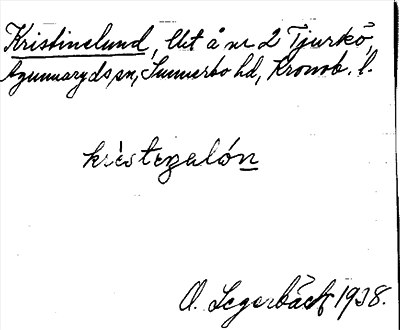 Kristinelund, lht å nr 2 Tjurkö,
Agunnaryds sn, Sunnerbo hd, Kronob. l.
kristenalón
O. Segerbäck 1938.